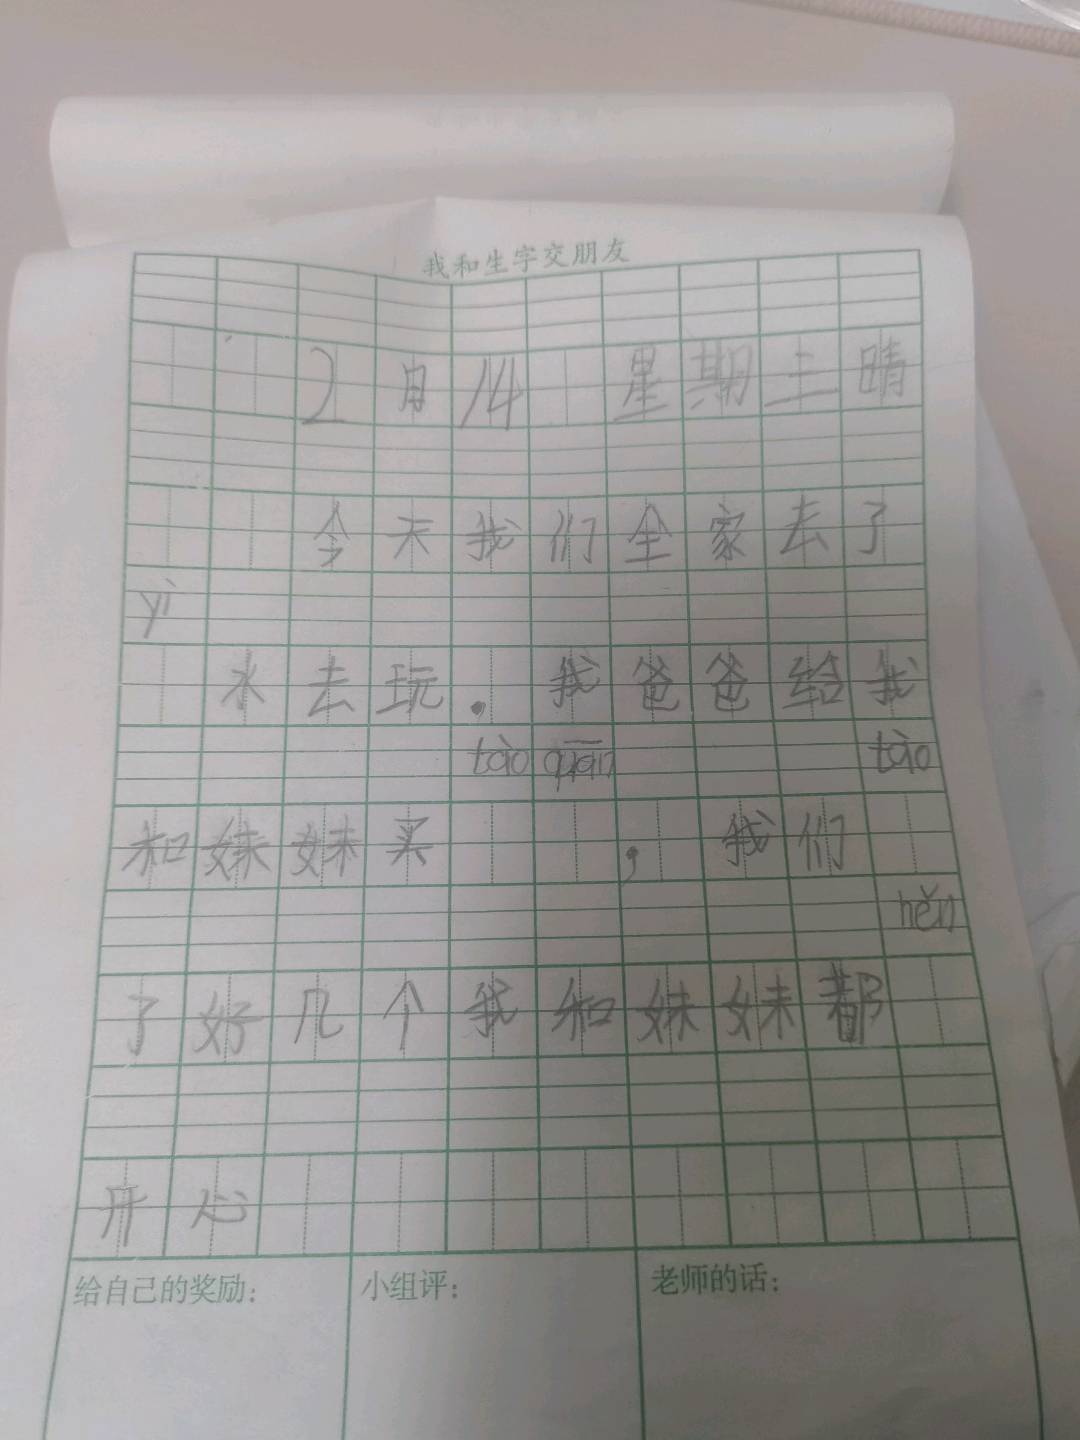 我和生字交朋友
2月14 星期三晴
今天我们全家去了
yì
水去玩。我爸爸给我
tào quān tào
和妹妹买 ，我们
hěn
了好几个我和妹妹都
开心
给自己的奖励： 小组评： 老师的话：